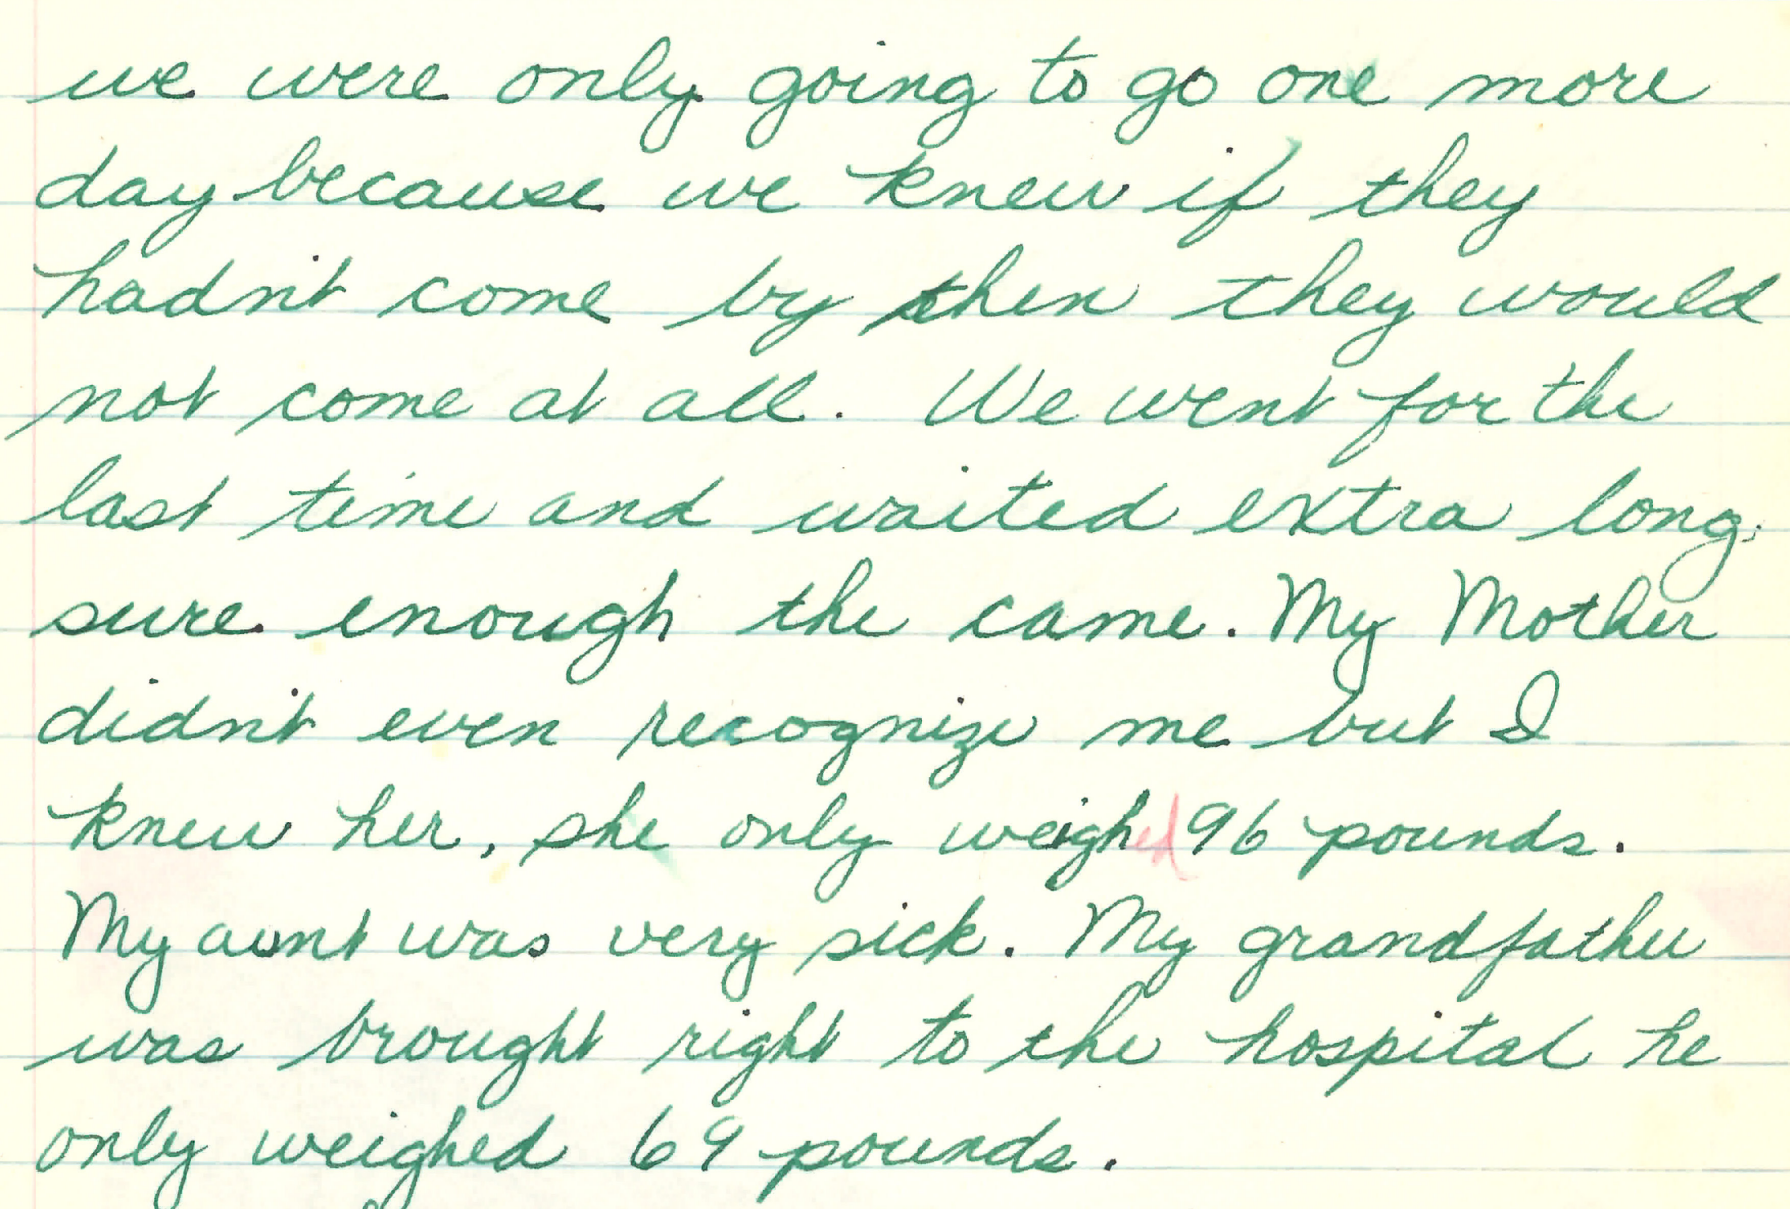 we were only going to go one more
day because we knew if they
hadn't come by then they would
not come at all. We went for the
last time and waited extra long.
sure enough the came. My Mother
didn't even recognize me but I
knew her, she only weighed 96 pounds.
My aunt was very sick. My grandfather
was brought right to the hospital he
only weighed 69 pounds.